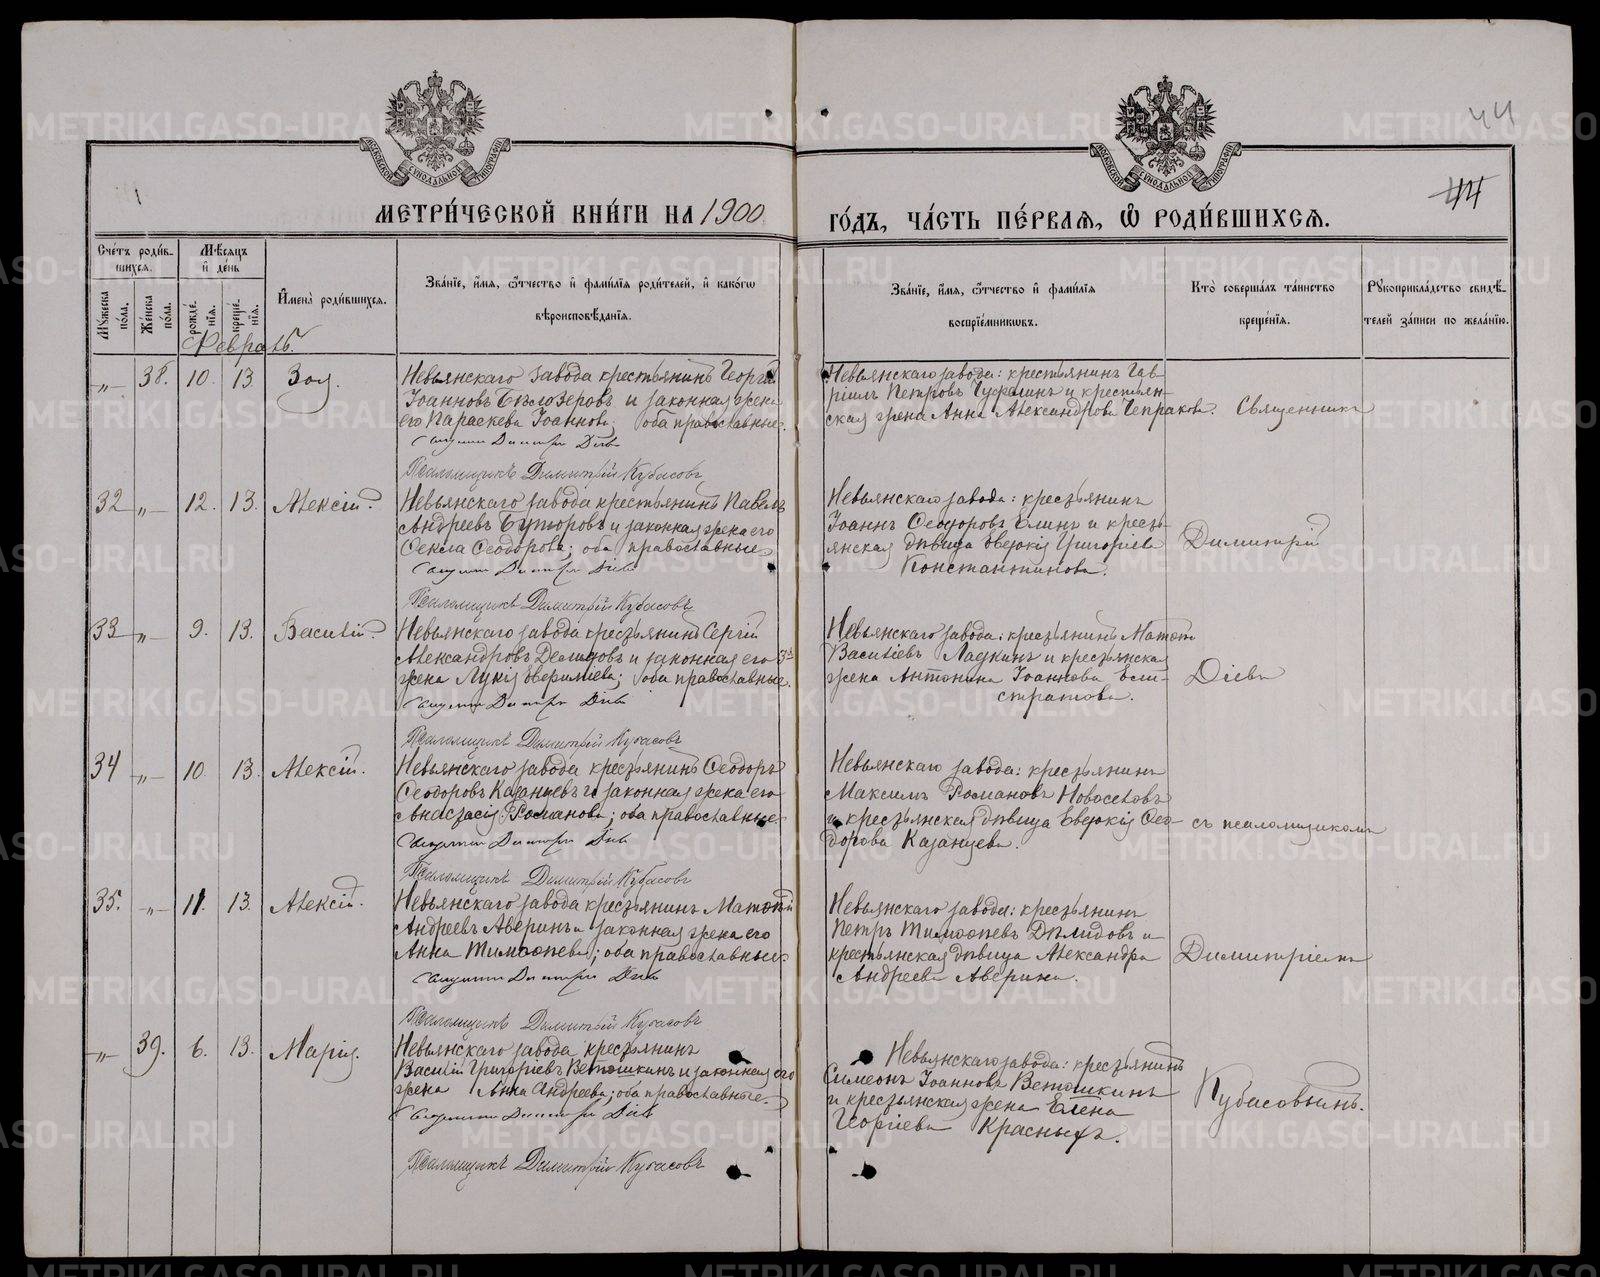 44
44
МЕТРИ́ЧЕСКОЙ КНИ́ГИ НА 1900 ГО́ДЪ, ЧА́СТЬ ПЕ́РВАЯ, Ѡ РОДИ́ВШИХСЯ.
Сче́тъ роди́вшихся.
Му́жеска по́ла.
Же́нска по́ла.
Мѣ́сяцъ и́ де́нь
рожде́нія.
креще́нія.
И́мена̀ роди́вшихся.
Зва́ніе, и́мя, ѻ҆́тчество и́ фами́лія роди́телей, и́ како́гѡ
вѣроисповѣ́данія.
Зва́ніе, и́мя, ѻ҆́тчество и́ фами́лія
воспріе́мникѡвъ.
Кто̀ соверша́лъ та́инство
креще́нія.
Рꙋкоприкла́дство свидѣ́телей за́писи по жела́нію.
Февраль.
„ 38. 10. 13. Зоя.
Невьянскаго завода крестьянинъ Георгій
Іоанновъ Бѣлозеровъ и законная жена
его Параскева Іоаннова; оба православные.
Священникъ Димитрій Діевъ
Псаломщикъ Димитрій Кубасовъ
Невьянскаго завода: крестьянинъ Гавріилъ Петровъ Чуфалинъ и крестьянская жена Анна Александрова Чепракова.
Священникъ
32 „ 12. 13. Алексій.
Невьянскаго завода крестьянинъ Павелъ
Андреевъ Буторовъ и законная жена его
Ѳекла Ѳеодорова; оба православные
Священникъ Димитрій Діевъ
Псаломщикъ Димитрій Кубасовъ
Невьянскаго завода: крестьянинъ
Іоаннъ Ѳеодоровъ Елинъ и крестьянская дѣвица Евдокія Григоріева
Константинова.
Димитрій
33 „ 9. 13. Василій.
Невьянскаго завода крестьянинъ Сергій
Александровъ Демидовъ и законная его
жена Лукія; оба православные.
Священникъ Димитрій Діевъ
Псаломщикъ Димитрій Кубасовъ
Невьянскаго завода: крестьянинъ
Василіевъ Ладкинъ и крестьянская
жена Антонина Іоаннова Елистратова.
Діевъ
34 „ 10. 13. Алексій.
Невьянскаго завода крестьянинъ Ѳеодоръ
Ѳеодоровъ Казанцевъ и законная жена его
Анастасія Романова; оба православные
Священникъ Димитрій Діевъ
Псаломщикъ Димитрій Кубасовъ
Невьянскаго завода: крестьянинъ
Максимъ Романовъ Новоселовъ
и крестьянская дѣвица Евдокія Ѳеодорова Казанцева.
съ псаломщикомъ
35. „ 11. 13. Алексій.
Невьянскаго завода крестьянинъ Матѳій
Андреевъ Аверинъ и законная жена его
Анна Тимоѳеева; оба православные
Священникъ Димитрій Діевъ
Псаломщикъ Димитрій Кубасовъ
Невьянскаго завода: крестьянинъ
Петръ Тимоѳеевъ Дѣлидовъ и
крестьянская дѣвица Александра
Андреева Аверина.
Димитріемъ
„ 39. 6. 13. Марія.
Невьянскаго завода крестьянинъ
Василій Григоріевъ Ветошкинъ и законная его
жена Анна Андреева; оба православные.
Священникъ Димитрій Діевъ
Псаломщикъ Димитрій Кубасовъ
Невьянскаго завода: крестьянинъ
Симеонъ Іоанновъ Ветошкинъ
и крестьянская жена Елена
Георгіева Красныхъ.
Кубасовымъ.
METRIKI.GASO-URAL.RU